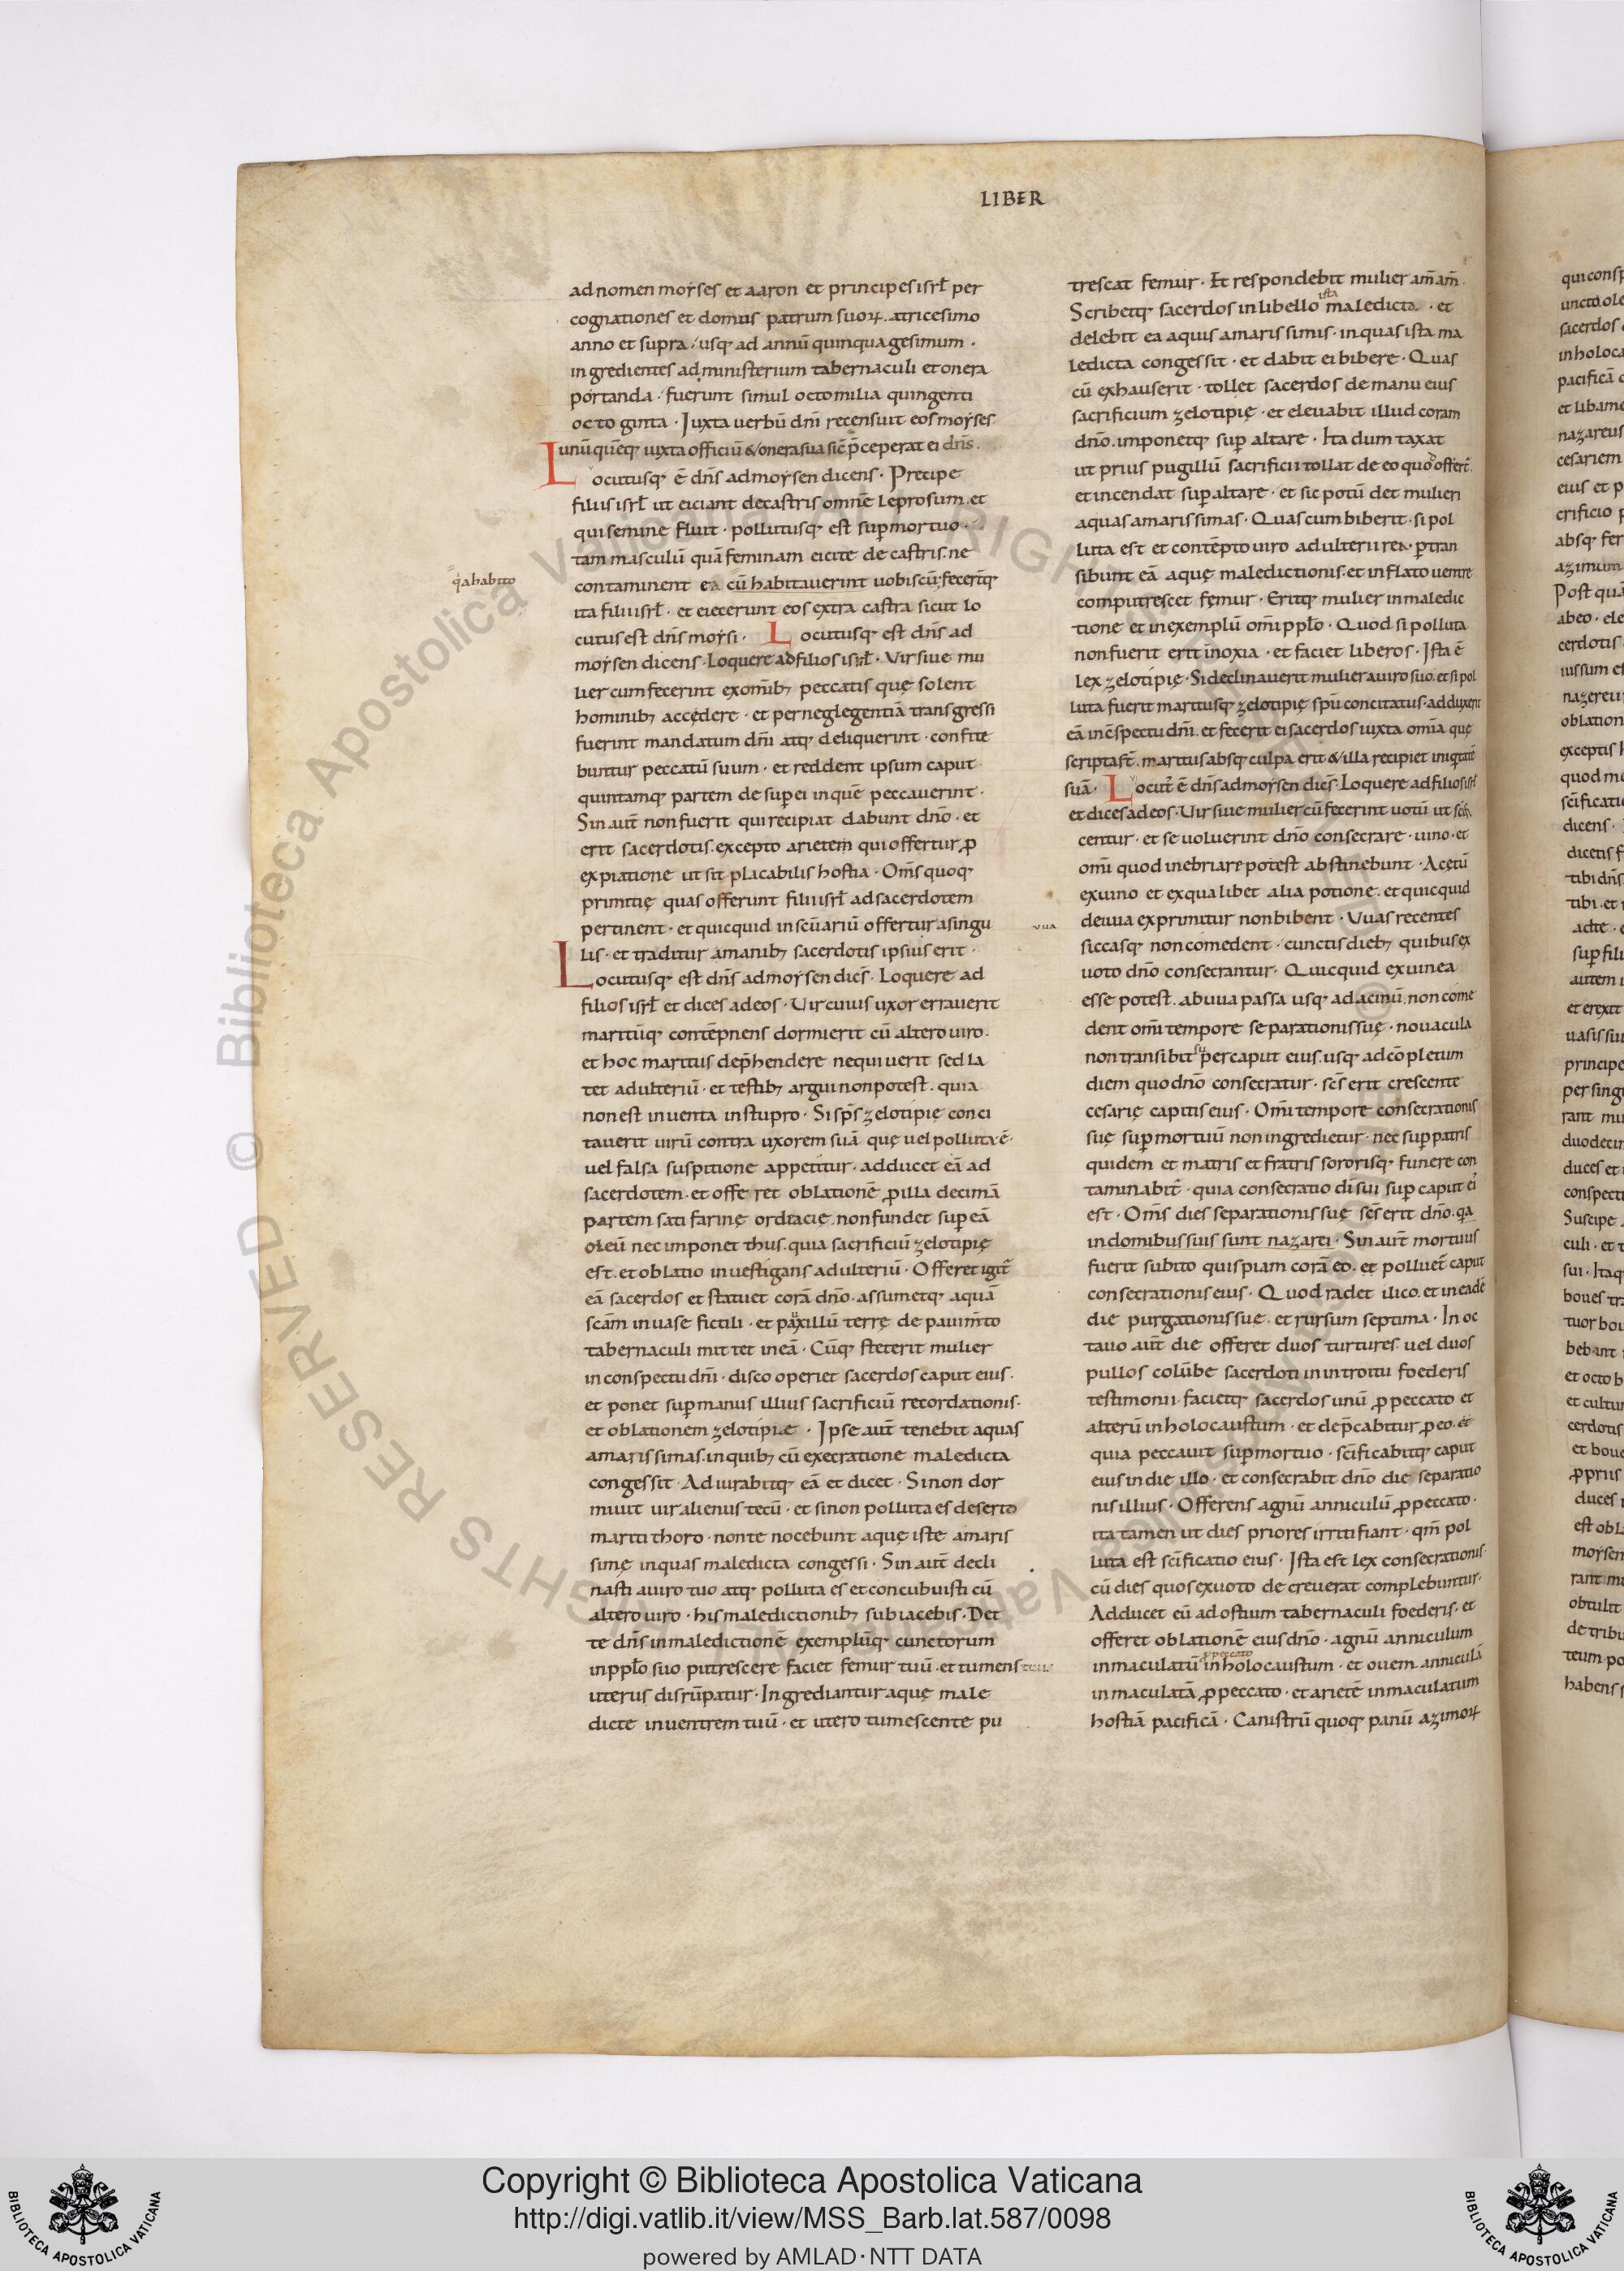 LIBER
ad nomen moyses et aaron et principes isrł per
cognationes et domus patrum suoꝝ. a tricesimo
anno et supra usq; ad annū quinquagesimum ·
ingredientes ad ministerium tabernaculi et onera
portanda · fuerunt simul octo milia quingenti
octoginta · Iuxta uerbū dn̄i recensuit eos moyses
unū quēq; iuxta officiū & onera sua sic̄ p̄ceperat ei dn̄s.
Locutusq; ē dn̄s ad moysen dicens · Precipe
filiis isrł ut eiciant de castris omnē leprosum. et
qui semine fluit · pollutusq; est sup mortuo ·
tam masculū quā feminam eicite de castris. ne
contaminent ea cū habitauerint uobiscū. feceruntq;
q̇a habito
ita filii isrł · et eiecerunt eos extra castra sicut lo
cutus est dn̄s moysi · Locutusq; est dn̄s ad
moysen dicens · Loquere ad filios isrł · Vir siue mu
lier cum fecerint ex om̄ib; peccatis quę solent
hominib; accędere · et per neglegentiā transgressi
fuerint mandatum dn̄i atq; deliquerint · confite
buntur peccatū suum · et reddent ipsum caput
quintamq; partem desuper ei in quē peccauerint ·
Sin aut̄ non fuerit qui recipiat dabunt dn̄o · et
erit sacerdotis. excepto arietem qui offertur ꝓ
expiatione ut sit placabilis hostia · Om̄s quoq;
primitię quas offerunt filii isrł ad sacerdotem
pertinent · et quicquid in scūariū offertur a singu
lis · et traditur a manib; sacerdotis ipsius erit ·
Locutusq; est dn̄s ad moysen dicēs · Loquere ad
filios isrł et dices ad eos · Vir cuius uxor errauerit
maritūq; contēpnens dormierit cū altero uiro ·
et hoc maritus dep̄hendere nequiuerit sed la
tet adulteriū · et testib; argui non potest. quia
non est inuenta in stupro · Si sps̄ zelotipię conci
tauerit uirū contra uxorem suā quę uel polluta ē ·
uel falsa suspitione appetitur · adducet eā ad
sacerdotem. et offeret oblationē ꝓ illa decimā
partem sati farinę ordiacię. non fundet sup eā
oleū nec imponet thus. quia sacrificiū zelotipię
est. et oblatio inuestigans adulteriū · Offeret igit̄
eā sacerdos et statuet corā dn̄o · assumetq; aquā
scām in uase fictili · et pauxillū terrę de pauim̄to
tabernaculi mittet in eā · Cūq; steterit mulier
in conspectu dn̄i · discooperiet sacerdos caput eius ·
et ponet sup manus illius sacrificiū recordationis ·
et oblationem zelotipię · Ipse aut̄ tenebit aquas
amarissimas. in quib; cū execratione maledicta
congessit · Adiurabitq; eā et dicet · Si non dor
miuit uir alienus tecū · et si non polluta es deserto
mariti thoro · non te nocebunt aquę istę amaris
simę in quas maledicta congessi · Sin aut̄ decli
nasti a uiro tuo atq; polluta es et concubuisti cū
altero uiro · his maledictionib; subiacebis · Det
te dn̄s in maledictionē exemplūq; cunctorum
in ppło suo putrescere faciet femur tuū · et tumens tuus
uterus disrūpatur · Ingrediantur aquę male
dictę in uentrem tuū · et utero tumescente pu
trescat femur · Et respondebit mulier am̄ am̄ ·
Scribetq; sacerdos in libello ista maledicta · et
delebit ea aquis amarissimis · in quas ista ma
ledicta congessit · et dabit ei bibere · Quas
cū exhauserit · tollet sacerdos de manu eius
sacrificium zelotipię · et eleuabit illud coram
dn̄o. imponetq; sup altare · Ita dum taxat
ut prius pugillū sacrificii tollat de eo quod offert̄.
et incendat sup altare · et sic potū det mulieri
aquas amarissimas · Quas cum biberit · si pol
luta est et contēpto uiro adulterii rea · ptran
sibunt eā aquę maledictionis. et inflato uentre
computrescet femur · Eritq; mulier in maledic
tione et in exemplū om̄i ppło · Quod si polluta
non fuerit erit inoxia · et faciet liberos · Ista ē
lex zelotipię · Si declinauerit mulier a uiro suo. et si pol
luta fuerit maritusq; zelotipię spū concitatus · adduxerit
eā in c̄spectu dn̄i. et fecerit ei sacerdos iuxta omīa quę
scripta st̄. maritus absq; culpa erit & illa recipiet iniqitatē
suā · Locut̄ ē dn̄s ad moysen dicēs · Loquere ad filios isrł
et dices ad eos · Vir siue mulier cū fecerint uotū ut scīfi
centur · et se uoluerint dn̄o consecrare · uino · et
om̄i quod inebriare potest abstinebunt · Acetū
ex uino et ex qualibet alia potione. et quicquid
de uua exprimitur non bibent · Vuas recentes
uua
siccasq; non comedent · cunctis dieb; quibus ex
uoto dn̄o consecrantur · Quicquid ex uinea
esse potest. ab uua passa usq; ad acinū. non come
dent om̄i tempore separationis suę · nouacula
non transibit super caput eius. usq; ad cōpletum
diem quo dn̄o consecratur · scs̄ erit crescente
cesarię capitis eius · Om̄i tempore consecrationis
suę sup mortuū non ingredietur · nec sup patris
quidem et matris et fratris sororisq; funere con
taminabit̄ · quia consecratio dī sui sup caput ei᾽
est · Om̄s dies separationis suę scs̄ erit dn̄o · qa
in domibus suis sunt nazarei · Sin aut̄ mortuus
fuerit subito quispiam corā eo. et polluet̄ caput
consecrationis eius · Quod radet ilico. et in eadē
die purgationis suę. et rursum septima · In oc
tauo aut̄ die offeret duos turtures. uel duos
pullos colūbę sacerdoti in introitu foederis
testimonii. facietq; sacerdos unū ꝓ peccato et
alterū in holocaustum · et dep̄cabitur ꝓ eo. et
quia peccauit sup mortuo · scīficabitq; caput
eius in die illo · et consecrabit dn̄o die separatio
nis illius · Offerens agnū anniculū ꝓ peccato ·
ita tamen ut dies priores irriti fiant · qm̄ pol
luta est scīficatio eius · Ista est lex consecrationis
cū dies quos ex uoto decreuerat complebuntur ·
Adducet eū ad ostium tabernaculi foederis. et
offeret oblationē eius dn̄o · agnū anniculum
inmaculatū in holocaustum · et ouem anniculā
inmaculatā ꝓ peccato · et arietē inmaculatum
hostiā pacificā · Canistrū quoq; panū azimoꝝ
Copyright © Biblioteca Apostolica Vaticana
http://digi.vatlib.it/view/MSS_Barb.lat.587/0098
powered by AMLAD·NTT DATA
BIBLIOTECA APOSTOLICA VATICANA
BIBLIOTECA APOSTOLICA VATICANA